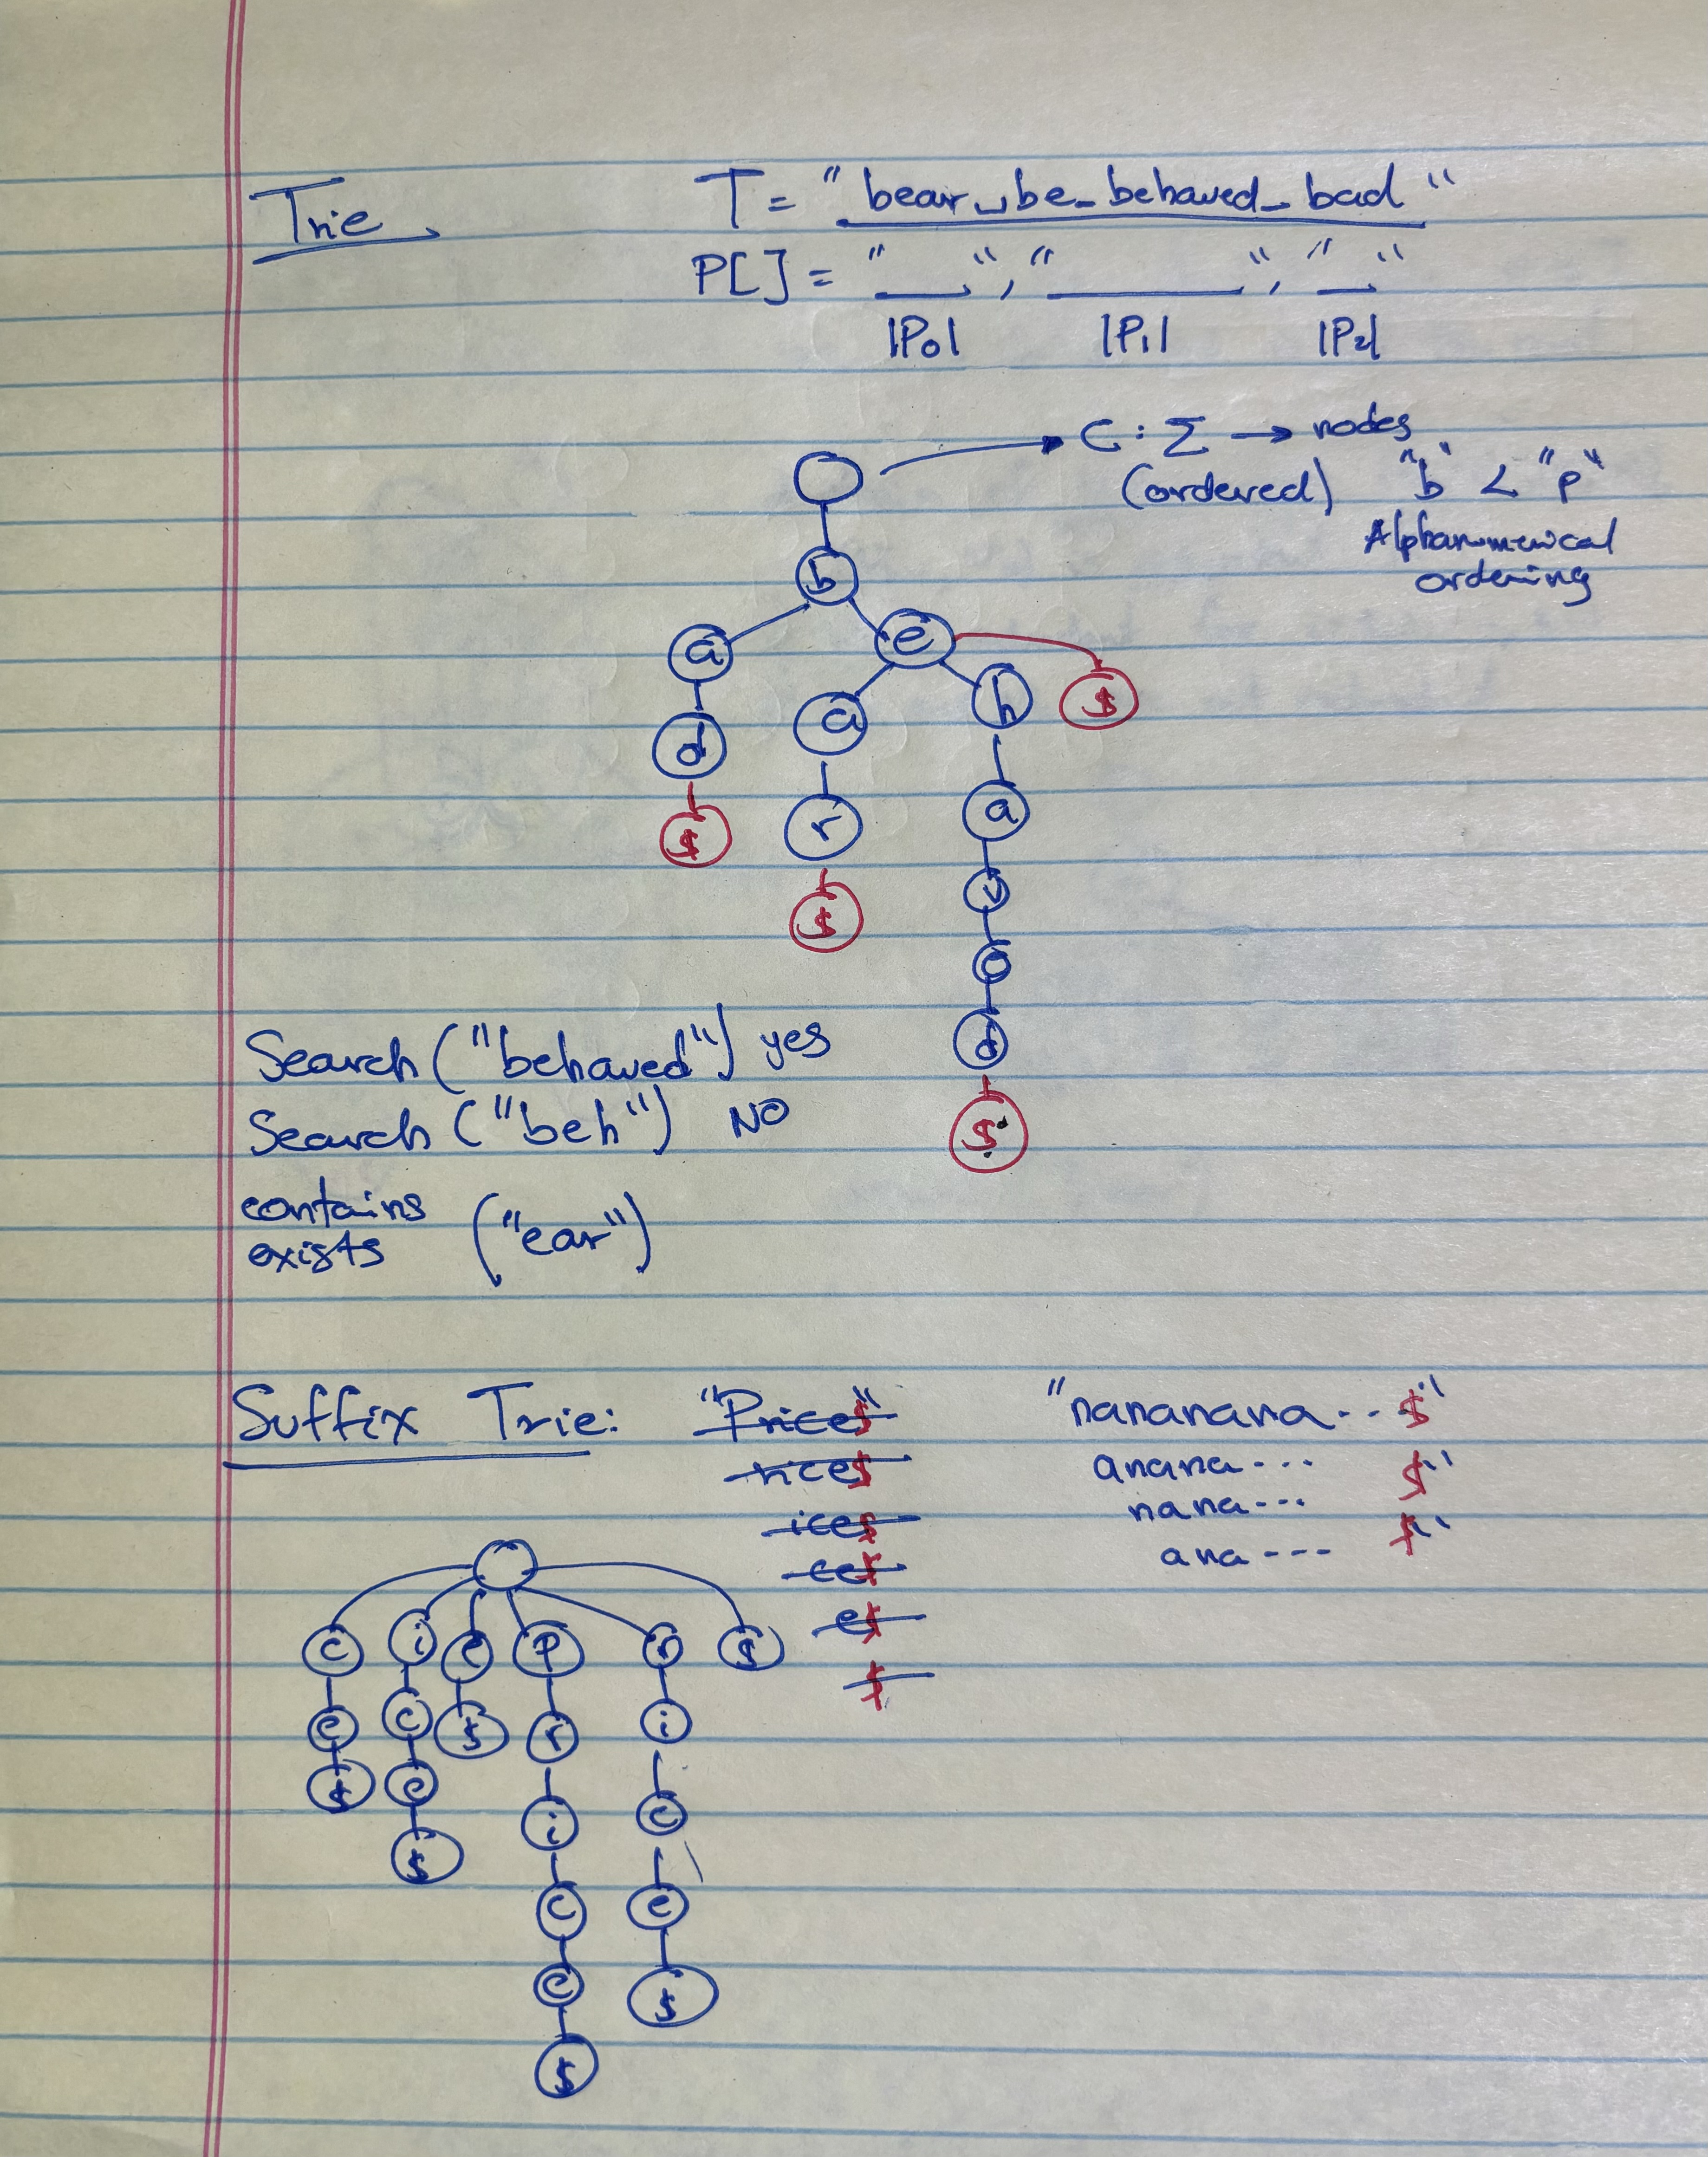 Trie
T = "bear_be_behaved_bad"
P[] = "___", "___", "___"
|P₀| |P₁| |P₂|
C : Σ → nodes
(ordered) "b" < "p"
Alphanumerical
ordering
b
a e
d a h $
$ r a
$ v
e
d
$
Search ("behaved") yes
Search ("beh") NO
contains
exists ("ear")
Suffix Trie: "Price$" "nananana...$"
rice$ anana... $"
ice$ nana...
ce$ ana--- $"
e$
$
c i e p r $
e c $ r i
$ e i c
$ c e
e $
$